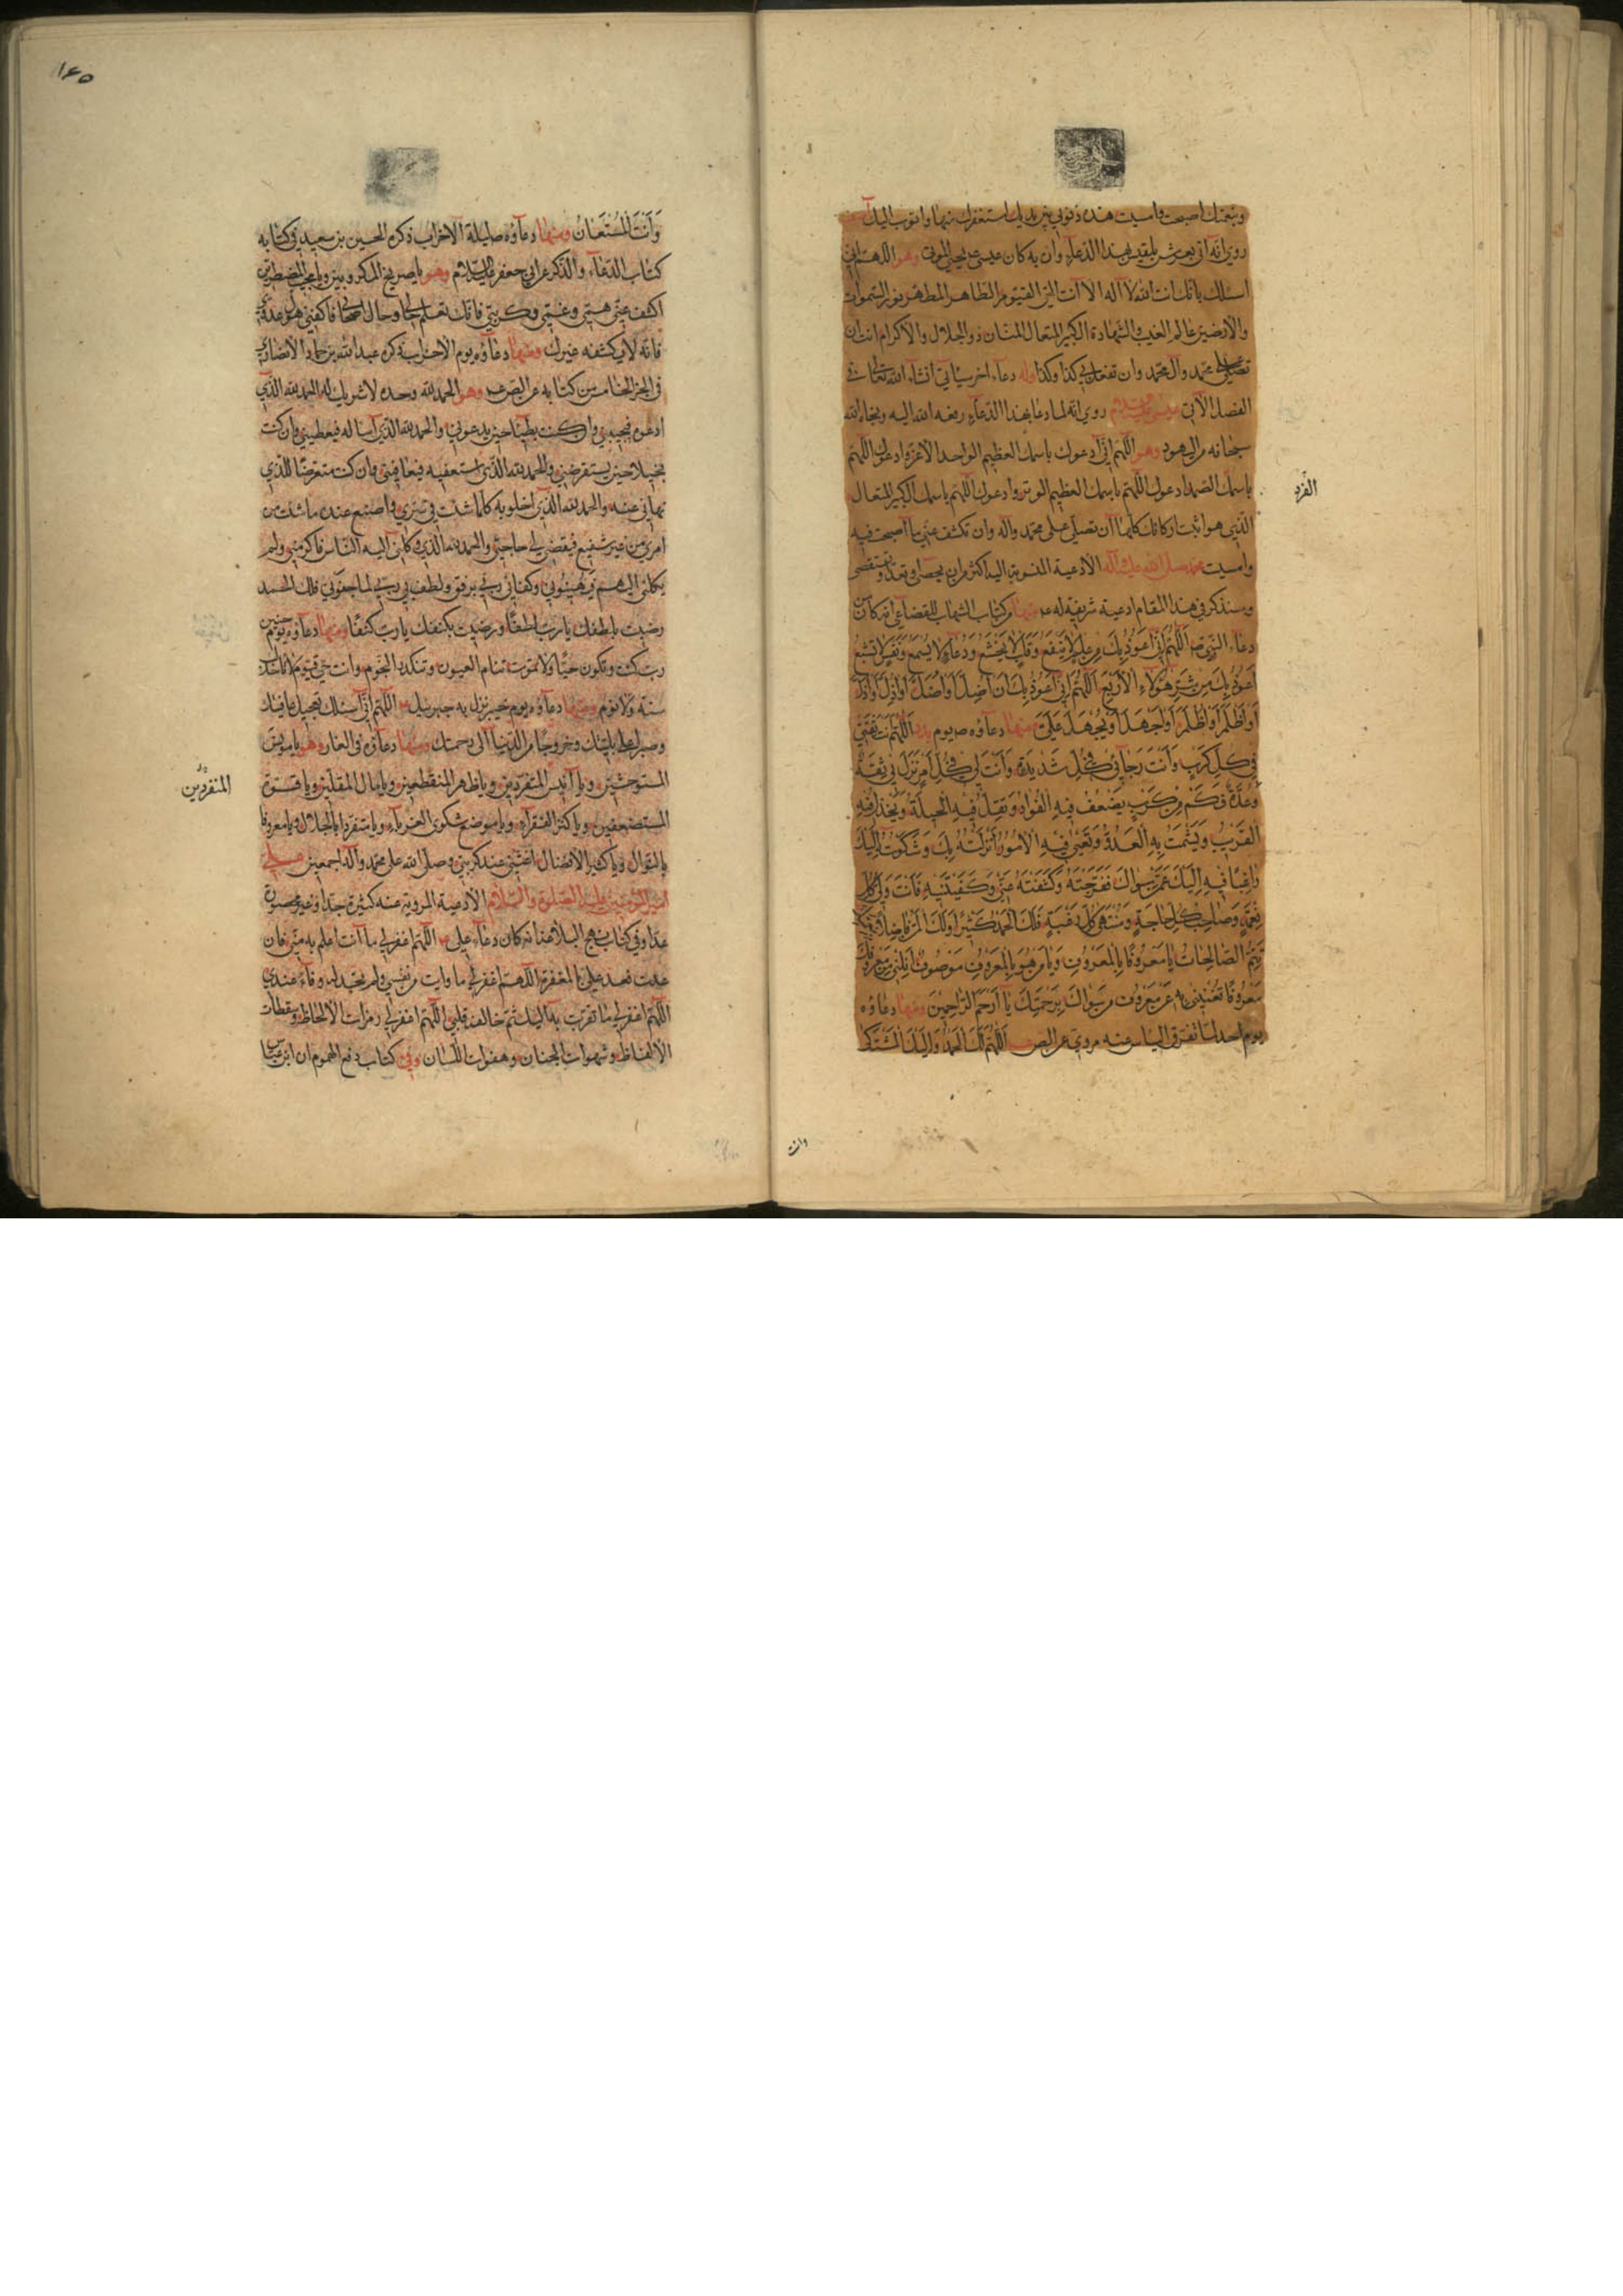 وبنعمتك اصبحت وامسيت هذه ذنوبي بين يديك استغفرك منها واتوب اليك
روي انه اتي بعرش بلقيس بهذا الدعاء وان به كان عيسى ع يحيي الموتى وهو اللهم اني
اسئلك بانك انت الله لا اله الا انت الحي القيوم الطاهر المطهر نور السموات
والارضين عالم الغيب والشهادة الكبير المتعال المنان ذو الجلال والاكرام ان
تصلي على محمد وآل محمد وان تفعل بي كذا وكذا وله دعاء اخر سيأتي انشاء الله تعالى في
الفصل الآتي عيسى عليه السلام روي انه لما دعا بهذا الدعاء رفعه الله اليه ونجاه الله
سبحانه من اليهود وهو اللهم اني ادعوك باسمك العظيم الواحد الاعز وادعوك اللهم
باسمك الصمد ادعوك اللهم باسمك العظيم الوتر وادعوك اللهم باسمك الكبير المتعال
الفرد
الذي هو اثبت اركانك كلها ان تصلي على محمد وآله وان تكشف عني ما اصبحت فيه
وامسيت محمد صلى الله عليه وآله الادعية المنسوبة اليه اكثر من ان يحصى وتعد وتستقصى
وسنذكر في هذا المقام ادعية شريفة له ع منها من كتاب الشهاب للقضاعي انه كان من
دعاء النبي ص اَللّهُمَّ اِنّي اَعُوذُ بِكَ مِنْ عِلْمٍ لا يَنْفَعُ وَقَلْبٍ لا يَخْشَعُ وَدُعاءٍ لا يُسْمَعُ وَنَفْسٍ لا تَشْبَعُ
اَعُوذُ بِكَ مِنْ شَرِّ هؤُلاءِ الاَرْبَعِ اَللّهُمَّ اِنّي اَعُوذُ بِكَ اَنْ اَضِلَّ اَوْ اُضَلَّ اَوْ اَذِلَّ اَوْ اُذَلَّ
اَوْ اَظْلِمَ اَوْ اُظْلَمَ اَوْ اَجْهَلَ اَوْ يُجْهَلَ عَلَيَّ منها دعاؤه ص يوم بدر اَللّهُمَّ اَنْتَ ثِقَتي
في كُلِّ كَرْبٍ وَاَنْتَ رَجائي في كُلِّ شَديدَةٍ وَاَنْتَ لي في كُلِّ اَمْرٍ نَزَلَ بي ثِقَةٌ
وَعُدَّةٌ فَكَمْ مِنْ كَرْبٍ يَضْعُفُ فيهِ الْفُؤادُ وَتَقِلُّ فيهِ الْحيلَةُ وَيَخْذُلُ فيهِ
الْقَريبُ وَيَشْمَتُ بِهِ الْعَدُوُّ وَتَعْيى فيهِ الاُمُورُ اَنْزَلْتُهُ بِكَ وَشَكَوْتُهُ اِلَيْكَ
راغِبًا فيهِ اِلَيْكَ عَمَّنْ سِواكَ فَفَرَّجْتَهُ وَكَشَفْتَهُ عَنّي وَكَفَيْتَنيهِ فَاَنْتَ وَلِيُّ كُلِّ
نِعْمَةٍ وَصاحِبُ كُلِّ حاجَةٍ وَمُنْتَهى كُلِّ رَغْبَةٍ فَلَكَ الْحَمْدُ كَثيرًا وَلَكَ الْمَنُّ فاضِلاً بِنِعْمَتِكَ
تَتِمُّ الصّالِحاتُ يا مَعْرُوفًا بِالْمَعْرُوفِ وَيا مَنْ هُوَ بِالْمَعْرُوفِ مَوْصُوفٌ اَنِلْني مِنْ مَعْرُوفِكَ
مَعْرُوفًا تُغْنيني بِهِ عَنْ مَعْرُوفِ مَنْ سِواكَ بِرَحْمَتِكَ يا اَرْحَمَ الرّاحِمينَ ومنها دعاؤه
يوم احد لما تفرق الناس عنه مروي عن الص اَللّهُمَّ لَكَ الْحَمْدُ وَاِلَيْكَ الْمُشْتَكى
وانت
١٤٥
وَاَنْتَ الْمُسْتَعانُ ومنها دعاؤه ص ليلة الاحزاب ذكره الحسين بن سعيد في كتابه
كتاب الدعاء والذكر عن ابي جعفر عليه السلام وهو يا صريخ المكروبين ويا مجيب المضطرين
اكشف عني همي وغمي وكربتي فانك تعلم حالي وحال اصحابي فاكفني هول عدوي
فانه لا يكشفه غيرك ومنها دعاؤه يوم الاحزاب ذكره عبد الله بن حماد الانصاري
في الجزء الخامس من كتابه عن الص ع وهو الحمد لله وحده لا شريك له الحمد لله الذي
ادعوه فيجيبني وان كنت بطيئا حين يدعوني والحمد لله الذي اساله فيعطيني وان كنت
بخيلا حين يستقرضني والحمد لله الذي استعفيه فيعافيني وان كنت متعرضا للذي
نهاني عنه والحمد لله الذي اخلو به كلما شئت في سري واصنع عنده ما شئت من
امري من غير شفيع فيقضي لي حاجتي والحمد لله الذي وكلني اليه الناس فاكرمني ولم
يكلني اليهم فيهينوني وكفاني ربي برفق ولطف بي ربي لما جفوني فلك الحمد
رضيت بلطفك يا رب لطفا ورضيت بكنفك يا رب كنفا ومنها دعاؤه يوم حنين
رب كنت وتكون حيا ولا تموت تنام العيون وتنكدر النجوم وانت حي قيوم لا تاخذك
سنة ولا نوم ومنها دعاؤه يوم خيبر نزل به جبرئيل ع اللهم اني اسئلك تعجيل عافيتك
وصبرا على بليتك وخروجا من الدنيا الى رحمتك ومنها دعاؤه في الغار وهو يا مونس
المستوحشين ويا انيس المتفردين ويا ظهر المنقطعين ويا مال المقلين ويا قوة
المنفردين
المستضعفين ويا كنز الفقراء ويا موضع شكوى الغرباء ويا متفردا بالجلال ويا معروفا
بالنوال ويا كثير الافضال اغثني عند كربتي وصلى الله على محمد وآله اجمعين علي
امير المؤمنين عليه الصلوة والسلام الادعية المروية عنه كثيرة جدا وغير محصورة
عدا وفي كتاب نهج البلاغة انه كان دعاء علي ع اللهم اغفر لي ما انت اعلم به مني فان
عدت فعد علي بالمغفرة اللهم اغفر لي ما وايت من نفسي ولم تجد له وفاء عندي
اللهم اغفر لي ما تقربت به اليك ثم خالفه قلبي اللهم اغفر لي رمزات الالحاظ وسقطات
الالفاظ وشهوات الجنان وهفوات اللسان وفي كتاب دفع الهموم ان ابن عباس